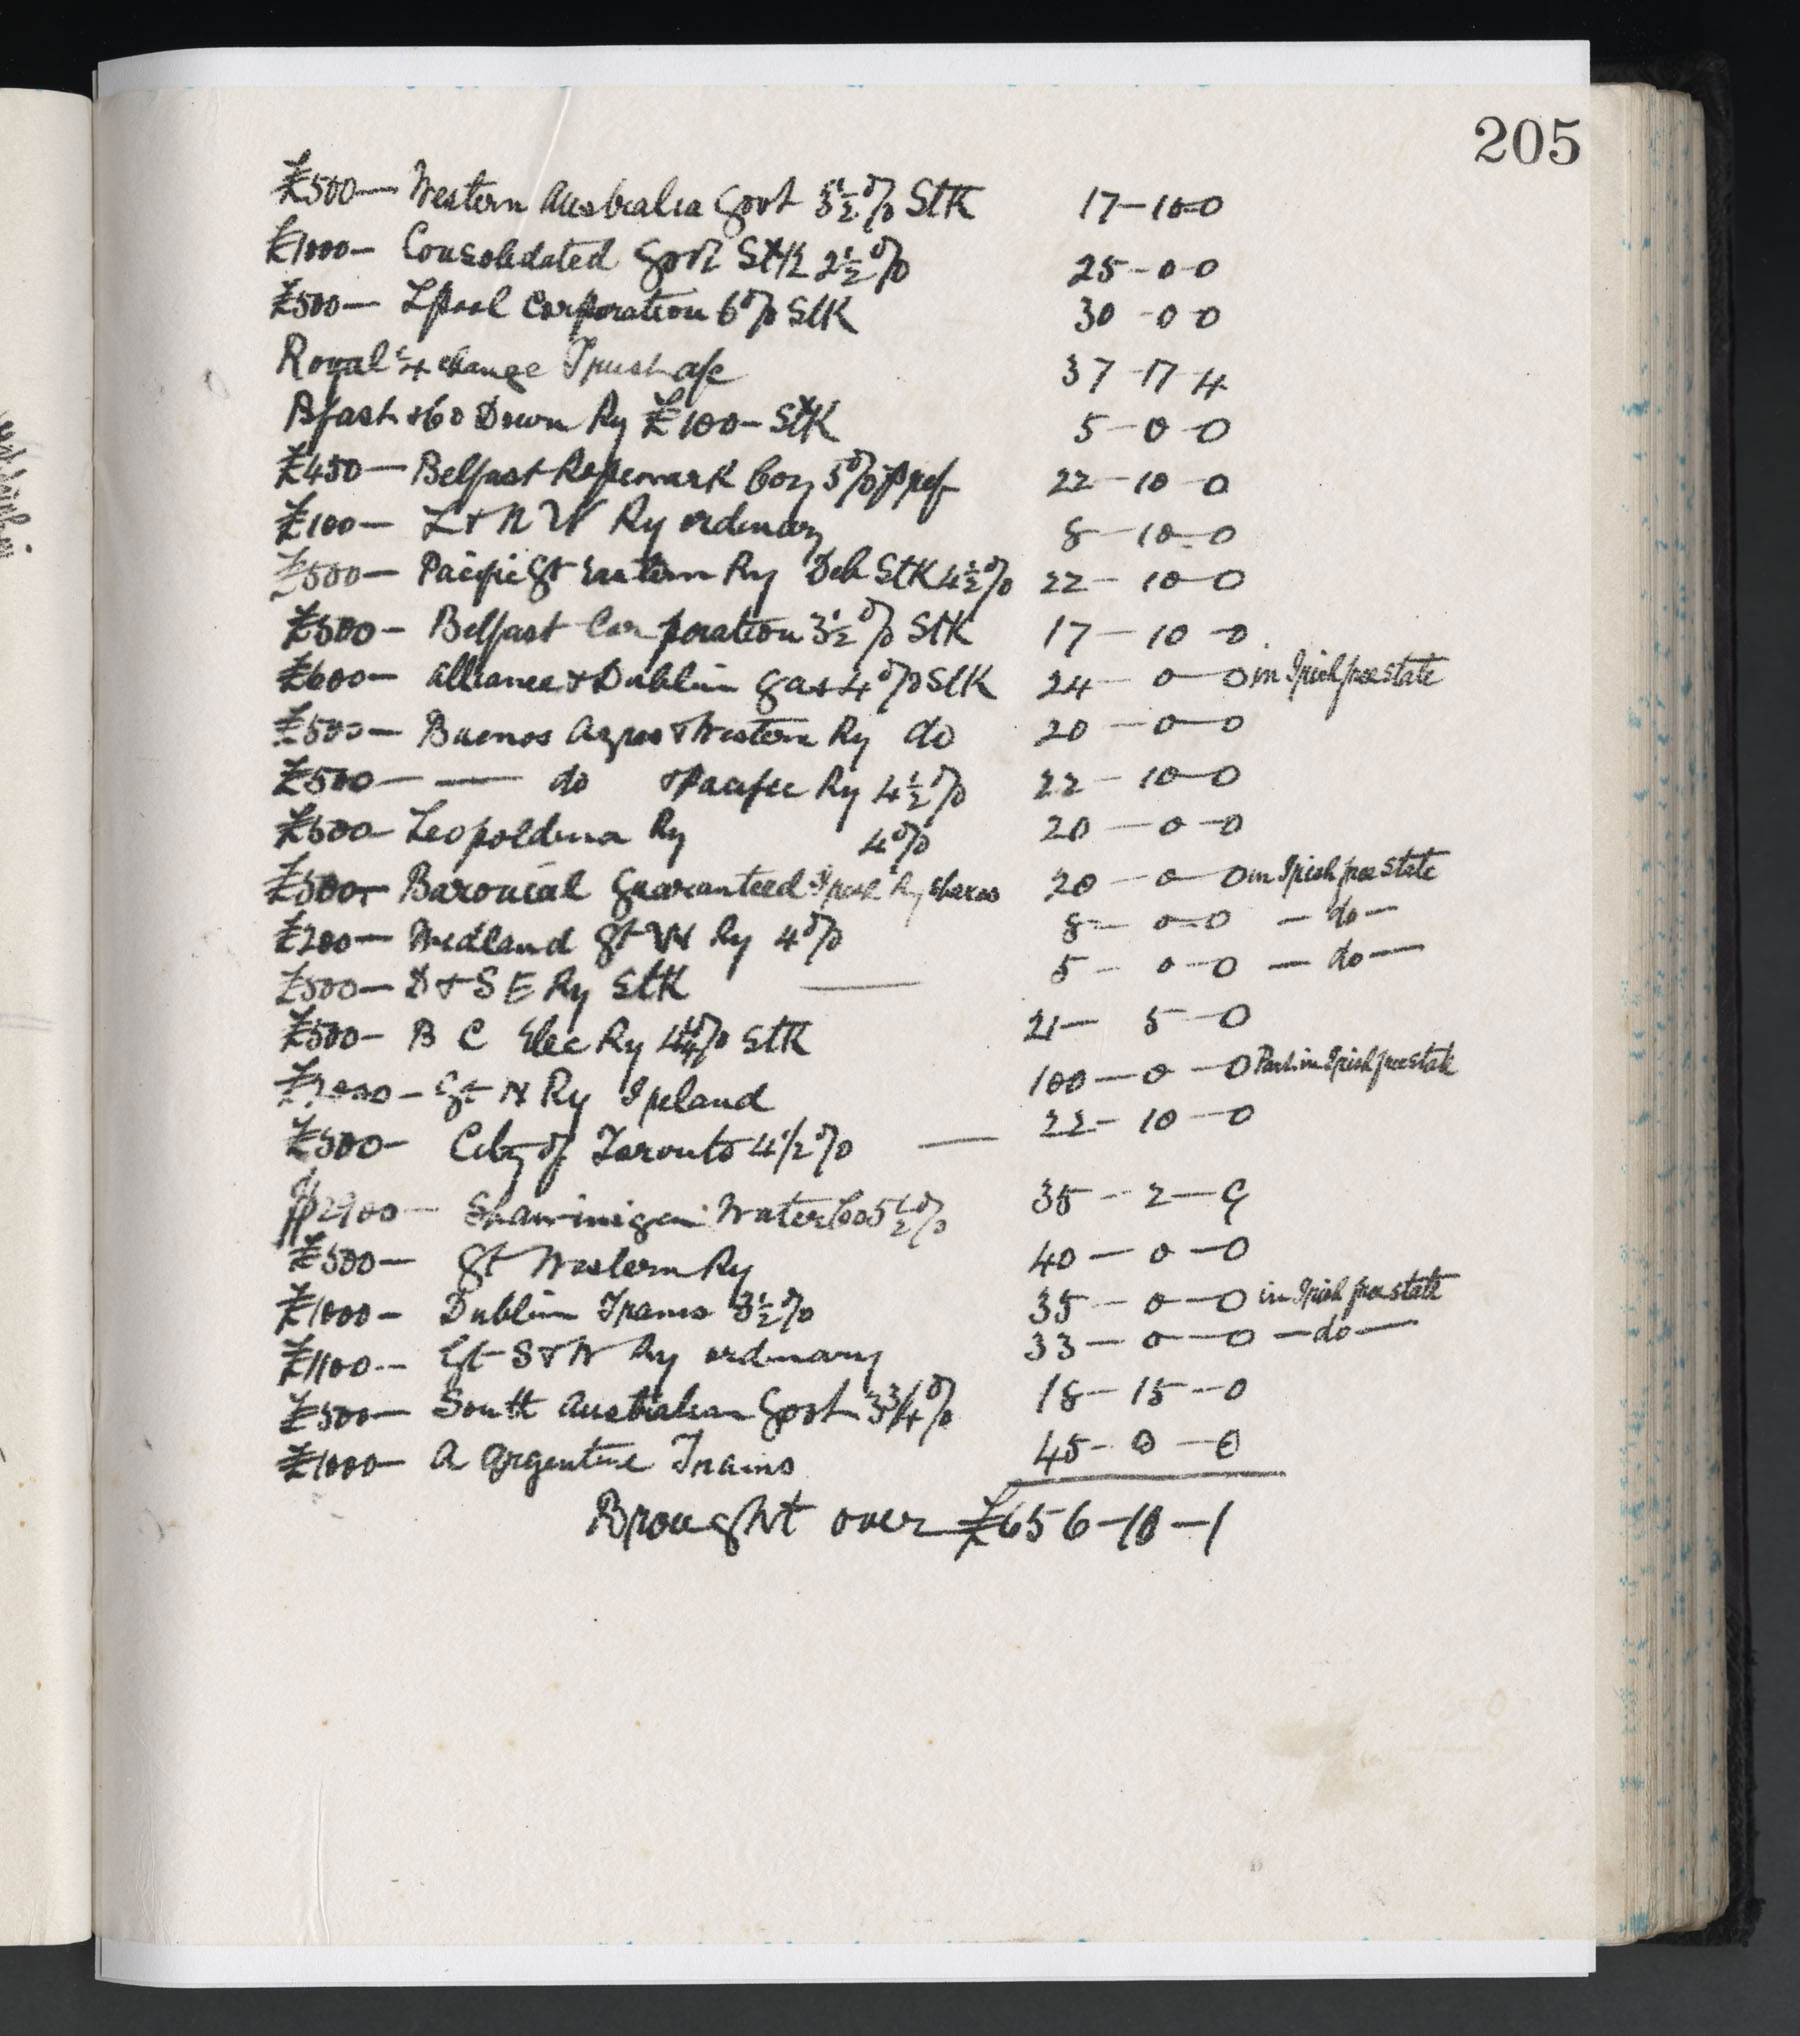 205
£500— Western Australia Govt 3½% Stk 17—10-0
£1000— Consolidated Govt Stk 2½% 25—0-0
£500— Lpool Corporation 6% Stk 30—0-0
Royal Exchange Trust a/c 37-17-4
Bfast & Co Down Ry £100— Stk 5—0—0
£450— Belfast Ropework Coy 5% Pref 22—10-0
£100— L & N W Ry ordinary 8—10—0
£500— Pacific Gt Eastern Ry Deb Stk 4½% 22—10—0
£500— Belfast Corporation 3½% Stk 17—10-0
£600— Alliance & Dublin Gas 4% Stk 24—0—0 in Irish free state
£500— Buenos Ayres & Western Ry do 20—0—0
£500— — do & Pacific Ry 4½% 22—10—0
£500— Leopoldina Ry 4% 20—0—0
£500— Baronial Guaranteed Irish Ry shares 20—0—0 in Irish free state
£200— Midland Gt W Ry 4% 8—0—0 — do —
£500— D & S E Ry Stk — 5—0—0 — do —
£500— B C Elec Ry 4¼% Stk 21—5—0
£2000— Gt N Ry Ireland 100—0—0 Part in Irish free state
£500— City of Toronto 4½% — 22—10—0
$2900— Shawinigan Water Co 5½% 35—2—9
£500— Gt Western Ry 40—0—0
£1000— Dublin Trams 3½% 35—0—0 in Irish free state
£1100— Gt S & W Ry ordinary 33—0—0 — do —
£500— South Australian Govt 3¾% 18—15—0
£1000— A Argentine Trams 45—0—0
Brought over £656—10—1